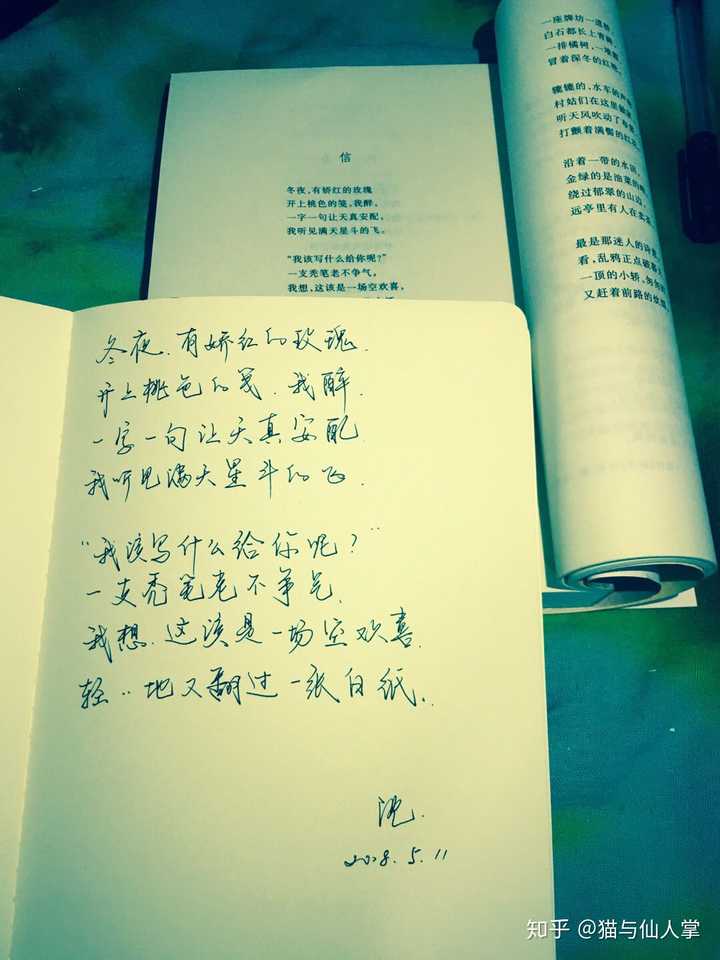 信
冬夜,有娇红的玫瑰
开上桃色的笺,我醉,
一字一句让天真安配,
我听见满天星斗的飞。
“我该写什么给你呢?”
一支秃笔老不争气,
我想,这该是一场空欢喜,
一座牌坊一道
白石都长上青
一排橘树,一堆
冒着深冬的红
辘辘的,水车的声
村姑们在这里
听天风吹动了
打颤着满鬓的红
沿着一带的水
金绿的是油菜的
绕过郁翠的山
远亭里有人在卖
最是那迷人的诗
看,乱鸦正点破
一顶的小轿,匆匆
又赶着前路的
冬夜.有娇红的玫瑰.
开上桃色的笺.我醉.
一字一句让天真安配
我听见满天星斗的飞.
“我该写什么给你呢?”
一支秃笔老不争气.
我想.这该是一场空欢喜.
轻..地又翻过一张白纸.
沈.
2018.5.11
知乎 @猫与仙人掌